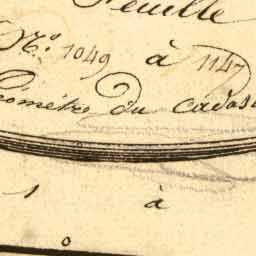 Feuille
N.º 1049 à 1147
Géomètre du cadas
1 à
0